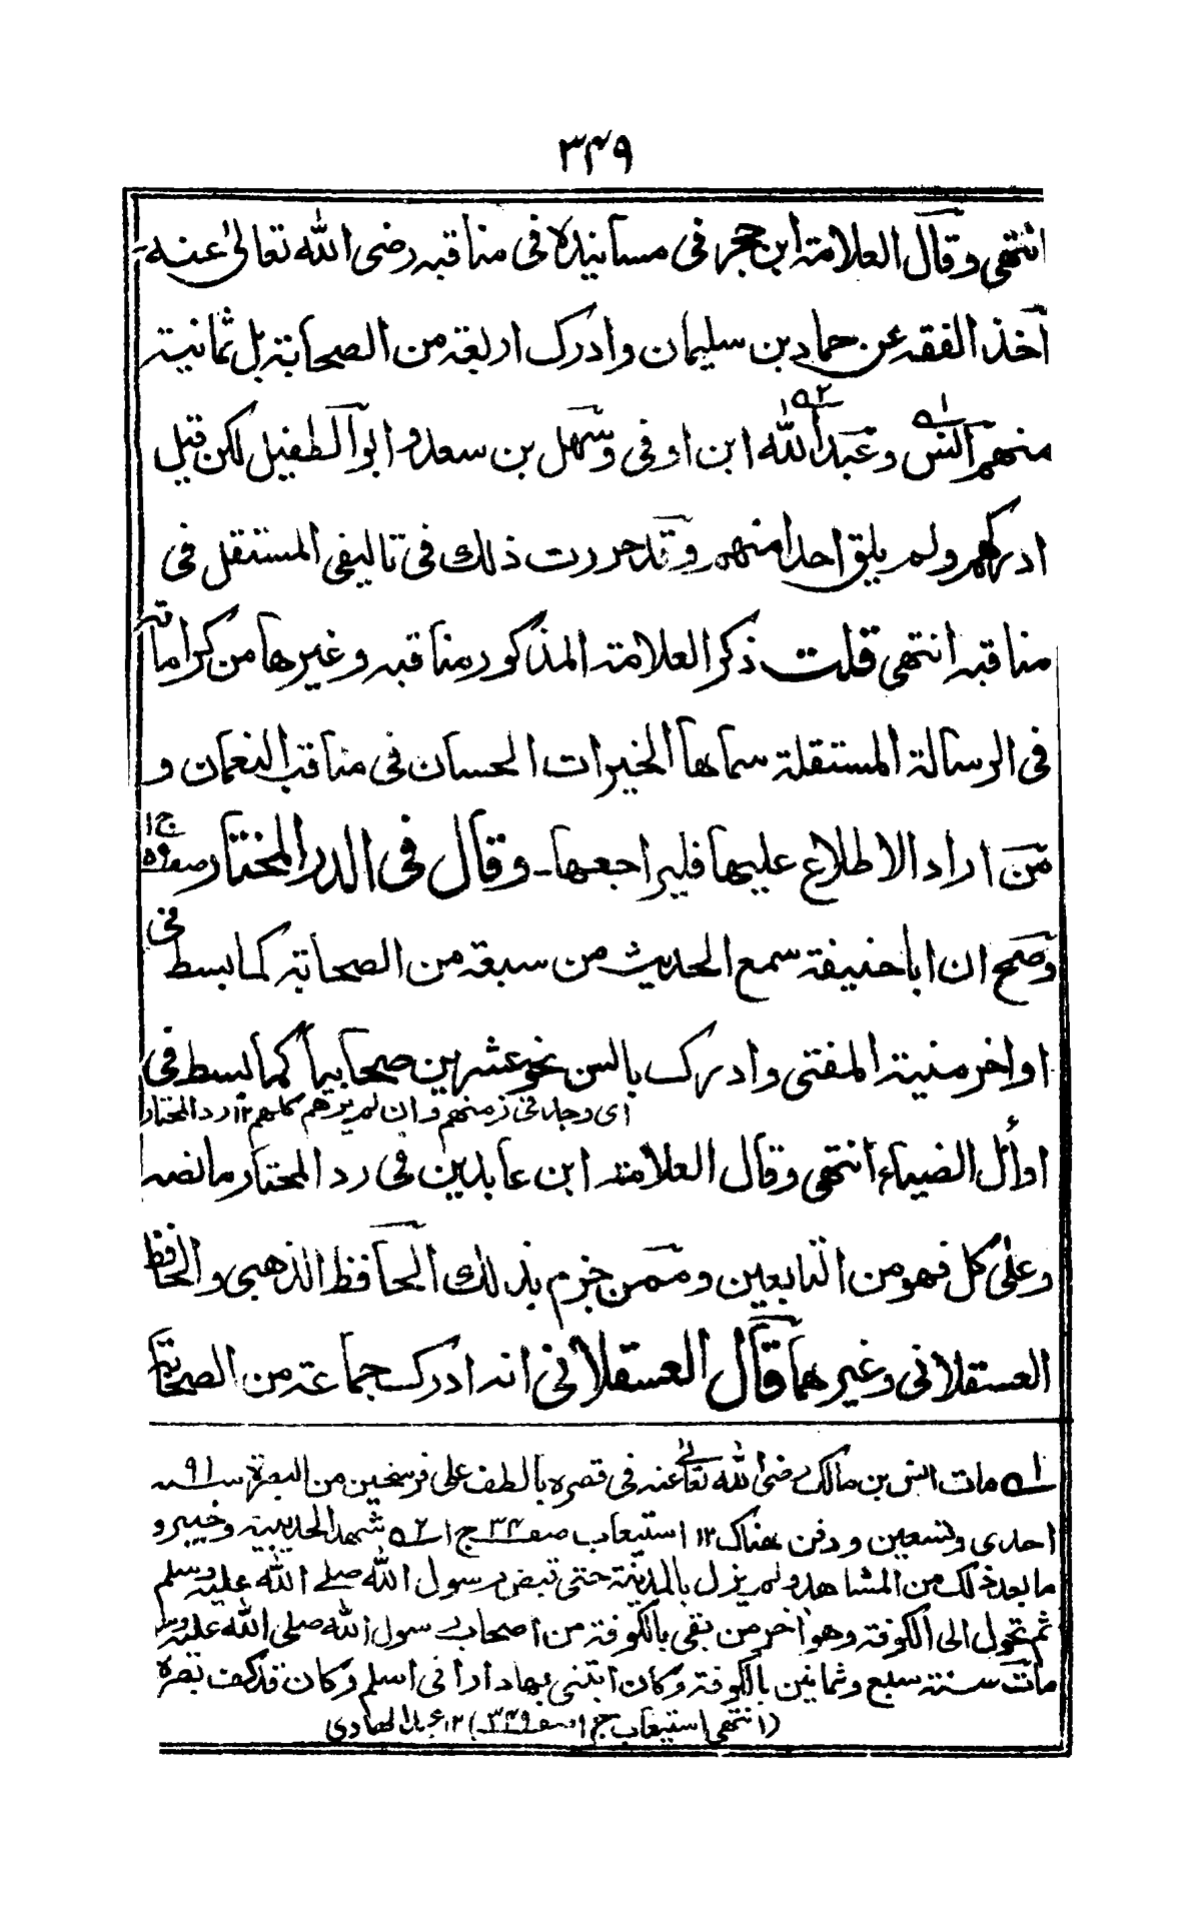 ۳۴۹
انتهى وقال العلامة ابن حجر فى مسانيده فى مناقبه رضى الله تعالى عنه۔
اخذ الفقه عن حماد بن سليمان وادرك اربعة من الصحابة بل ثمانية
منهم انس وعبد الله ابن اوفى وسهل بن سعد و ابو الطفيل لكن قيل
ادركهم ولم يلق احدا منهم وقد حررت ذلك فى تاليفى المستقل فى
مناقبه انتهى قلت ذكر العلامة المذكور مناقبه وغيرها من كراماته
فى الرسالة المستقلة سماها الخيرات الحسان فى مناقب النعمان و
من اراد الاطلاع عليها فليراجعها۔ وقال فى الدر المختار صفه۵۹ ج۱
وصح ان ابا حنيفة سمع الحديث من سبعة من الصحابة كما بسط فى
اواخر منية المفتى وادرك بالسن نحو عشرين صحابيا كما بسط فى
اى وجد فى زمنهم وان لم يرهم كلهم ۱۲ رد المحتار
اوائل الضياء انتهى وقال العلامة ابن عابدين فى رد المحتار ما نصه
وعلى كل فهو من التابعين وممن جزم بذلك الحافظ الذهبى والحافظ
العسقلانى وغيرهما قال العسقلانى انه ادرك جماعة من الصحابة
۱ه مات انس بن مالك رضى الله تعالى عنه فى قصره بالطف على فرسخين من البصرة سنه ۹۱
احدى وتسعين ودفن هناك ۱۲ استيعاب صفه ۳۴ ج۱ ۲ه شهد الحديبية وخيبر و
ما بعد ذلك من المشاهد ولم يزل بالمدينة حتى قبض رسول الله صلے الله عليه وسلم
ثم تحول الى الكوفة وهو اخر من بقى بالكوفة من اصحاب رسول الله صلى الله عليه وسلم
مات سنة سبع وثمانين بالكوفة وكان ابتنى بها دارا فى اسلم وكان قد كف بصره
(انتهى استيعاب ج۱ صفه ۳۴۹) ۱۲ عبد الهادى